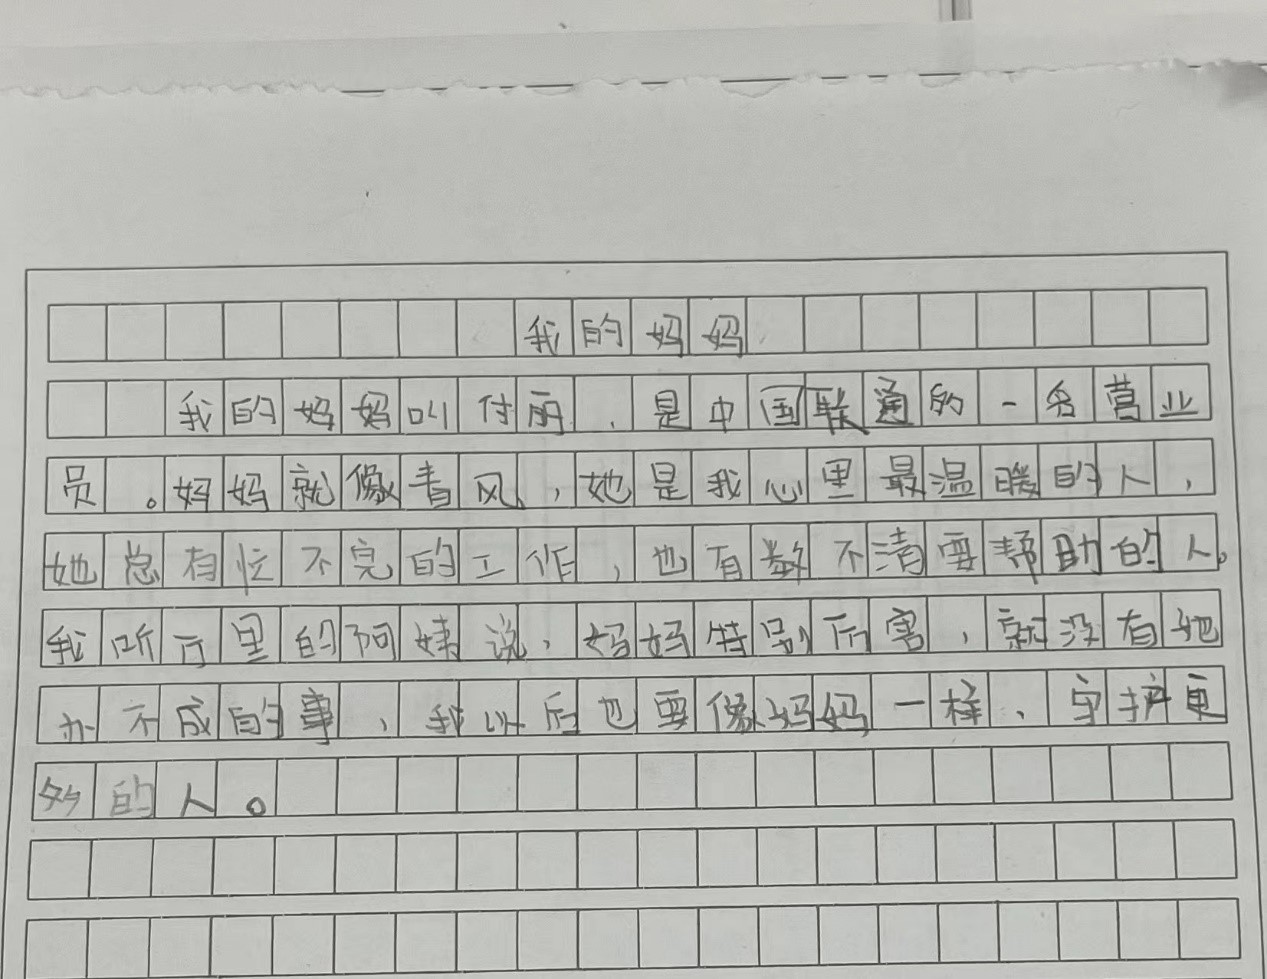 我的妈妈
我的妈妈叫付丽，是中国联通的一名营业
员。妈妈就像春风，她是我心里最温暖的人，
她总有忙不完的工作，也有数不清要帮助的人。
我听厅里的阿姨说，妈妈特别厉害，就没有她
办不成的事，我以后也要像妈妈一样、守护更
多的人。